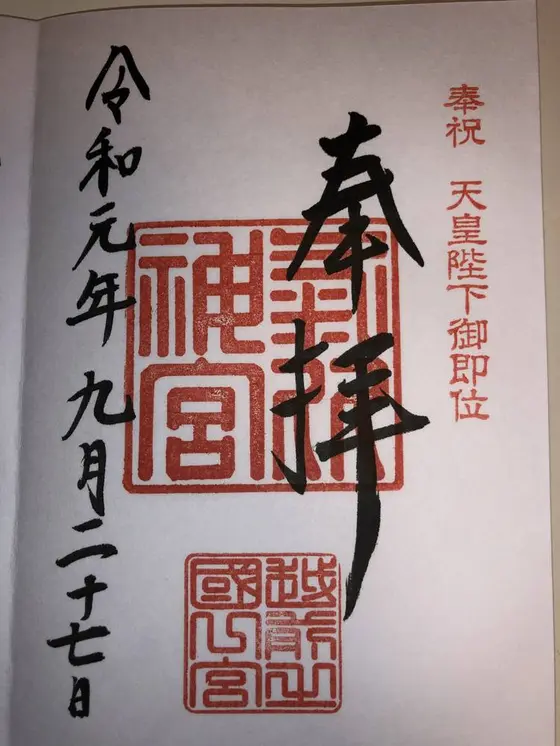 奉祝　天皇陛下御即位
奉拝
氣比
神宮
越前之
國一宮
令和元年九月二十七日